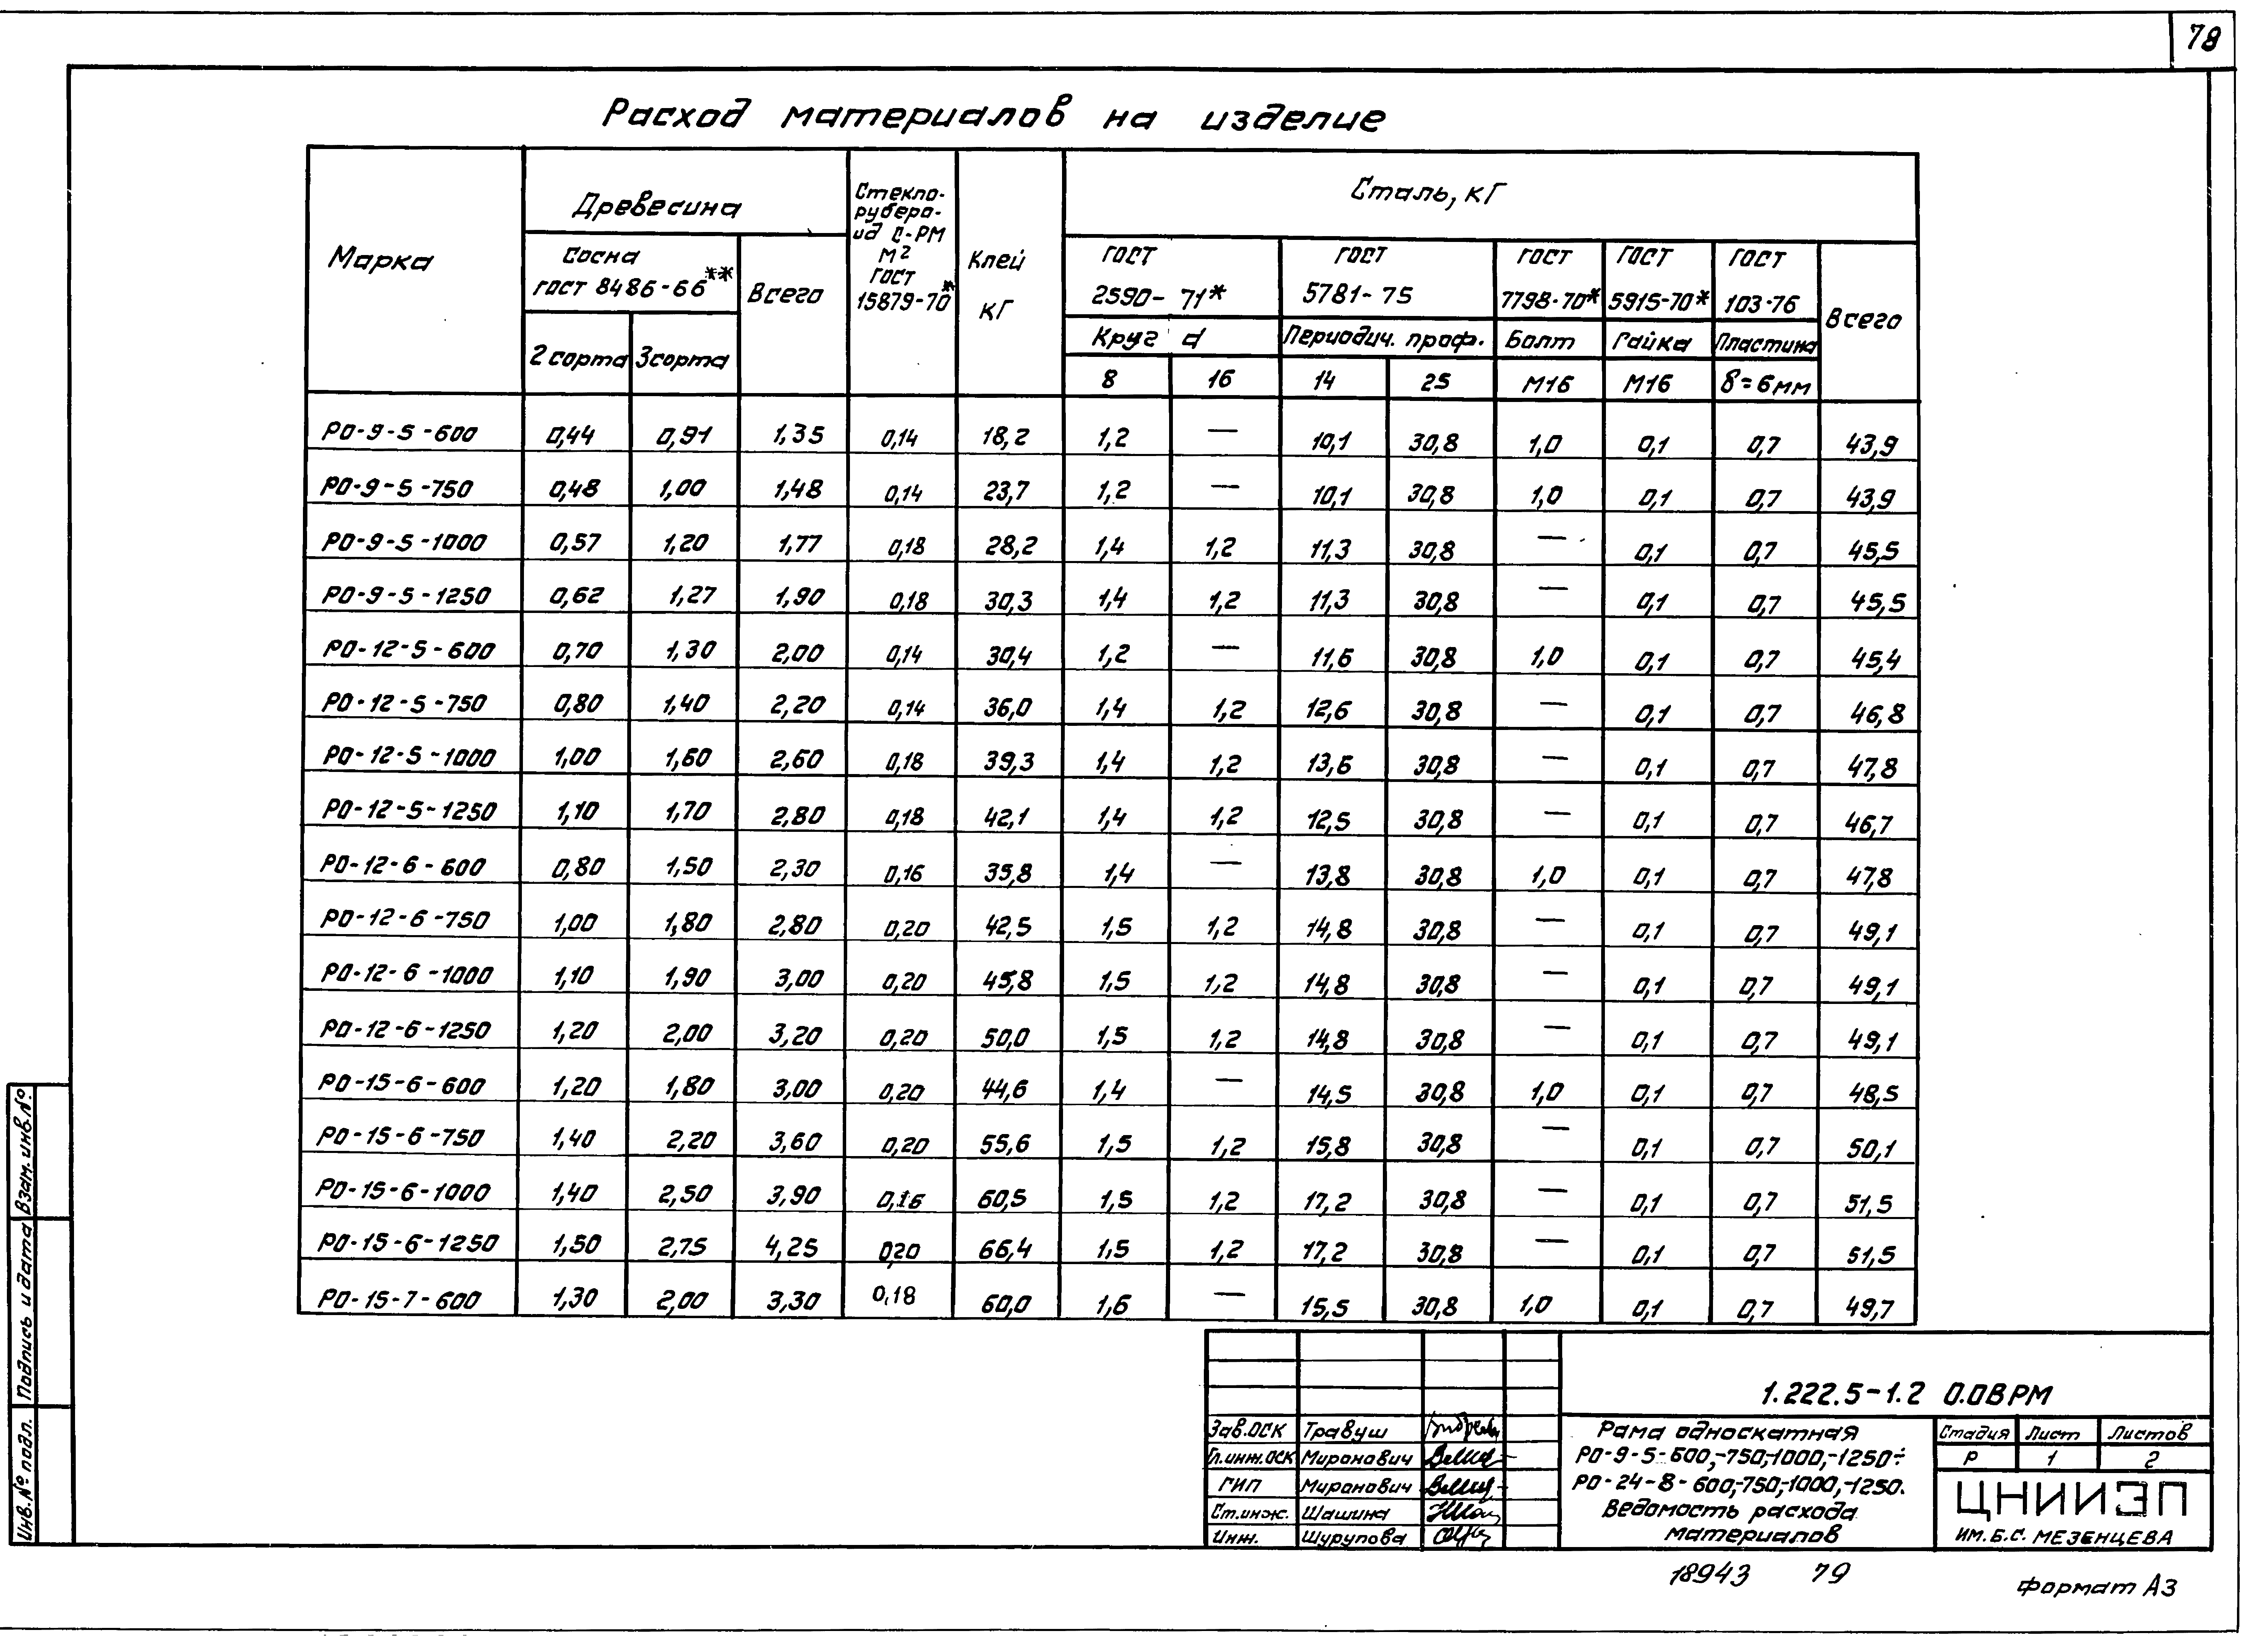 78
Расход материалов на изделие
Марка
Древесина
Сосна
гост 8486-66**
2 сорта 3 сорта
Всего
Стекло-
рубера-
ид С-РМ
м2
ГОСТ
15879-70*
Клей
кГ
Сталь, кГ
ГОСТ
2590-71*
Круг d
8 16
ГОСТ
5781-75
Периодич. проф.
14 25
ГОСТ
7798-70*
Болт
М16
ГОСТ
5915-70*
Гайка
М16
ГОСТ
103-76
Пластина
δ=6мм
Всего
РО-9-5-600 0,44 0,91 1,35 0,14 18,2 1,2 — 10,1 30,8 1,0 0,1 0,7 43,9
РО-9-5-750 0,48 1,00 1,48 0,14 23,7 1,2 — 10,1 30,8 1,0 0,1 0,7 43,9
РО-9-5-1000 0,57 1,20 1,77 0,18 28,2 1,4 1,2 11,3 30,8 — 0,1 0,7 45,5
РО-9-5-1250 0,62 1,27 1,90 0,18 30,3 1,4 1,2 11,3 30,8 — 0,1 0,7 45,5
РО-12-5-600 0,70 1,30 2,00 0,14 30,4 1,2 — 11,6 30,8 1,0 0,1 0,7 45,4
РО-12-5-750 0,80 1,40 2,20 0,14 36,0 1,4 1,2 12,6 30,8 — 0,1 0,7 46,8
РО-12-5-1000 1,00 1,60 2,60 0,18 39,3 1,4 1,2 13,6 30,8 — 0,1 0,7 47,8
РО-12-5-1250 1,10 1,70 2,80 0,18 42,1 1,4 1,2 12,5 30,8 — 0,1 0,7 46,7
РО-12-6-600 0,80 1,50 2,30 0,16 35,8 1,4 — 13,8 30,8 1,0 0,1 0,7 47,8
РО-12-6-750 1,00 1,80 2,80 0,20 42,5 1,5 1,2 14,8 30,8 — 0,1 0,7 49,1
РО-12-6-1000 1,10 1,90 3,00 0,20 45,8 1,5 1,2 14,8 30,8 — 0,1 0,7 49,1
РО-12-6-1250 1,20 2,00 3,20 0,20 50,0 1,5 1,2 14,8 30,8 — 0,1 0,7 49,1
РО-15-6-600 1,20 1,80 3,00 0,20 44,6 1,4 — 14,5 30,8 1,0 0,1 0,7 48,5
РО-15-6-750 1,40 2,20 3,60 0,20 55,6 1,5 1,2 15,8 30,8 — 0,1 0,7 50,1
РО-15-6-1000 1,40 2,50 3,90 0,16 60,5 1,5 1,2 17,2 30,8 — 0,1 0,7 51,5
РО-15-6-1250 1,50 2,75 4,25 0,20 66,4 1,5 1,2 17,2 30,8 — 0,1 0,7 51,5
РО-15-7-600 1,30 2,00 3,30 0,18 60,0 1,6 — 15,5 30,8 1,0 0,1 0,7 49,7
Инв.№ подл. Подпись и дата Взам. инв.№
1.222.5-1.2 0.0ВРМ
Зав.ОСК Травуш
Гл.инж.оск Миронович
ГИП Миронович
Ст.инж. Шашина
Инж. Шурупова
Рама односкатная
РО-9-5-600,-750,-1000,-1250÷
РО-24-8-600,-750,-1000,-1250.
Ведомость расхода
материалов
Стадия Лист Листов
Р 1 2
ЦНИИЭП
ИМ. Б.С. МЕЗЕНЦЕВА
18943 79
Формат А3